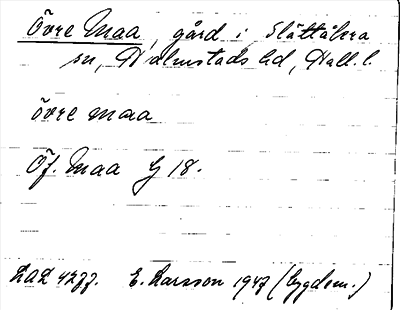 Övre Maa, gård i Slättåkra
sn, Halmstads hd, Hall. l.
övre maa
Öf. Maa G 18.
LAL 4277. E. Larsson 1947 (bygdem.)